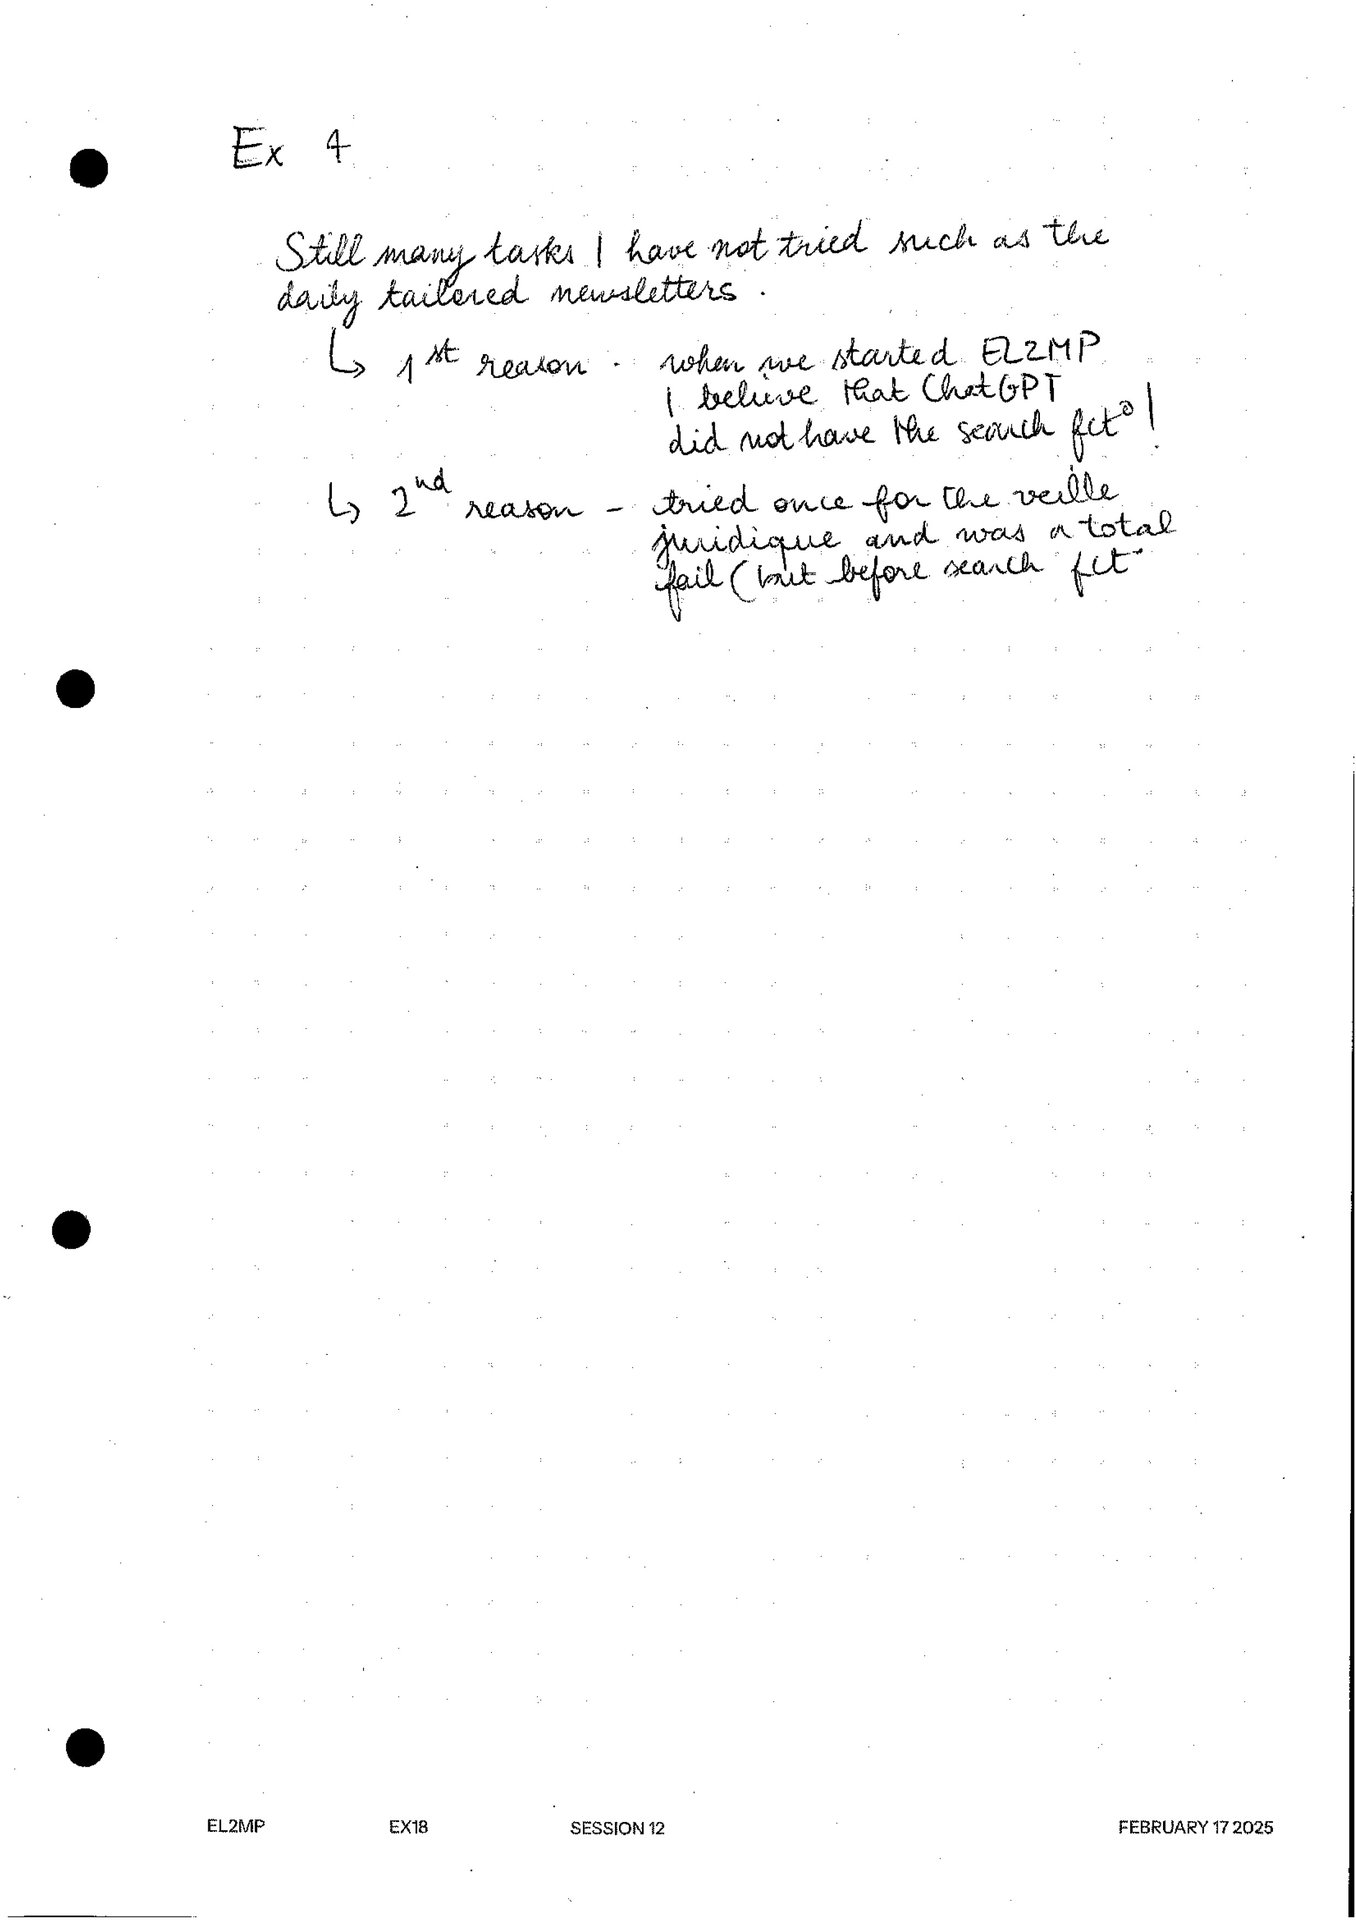 Ex 4
Still many tasks I have not tried such as the
daily tailored newsletters.
↳ 1st reason - when we started EL2MP
I believe that ChatGPT
did not have the search fct° !
↳ 2nd reason - tried once for the veille
juridique and was a total
fail (but before search fct°
EL2MP EX18 SESSION 12 FEBRUARY 17 2025